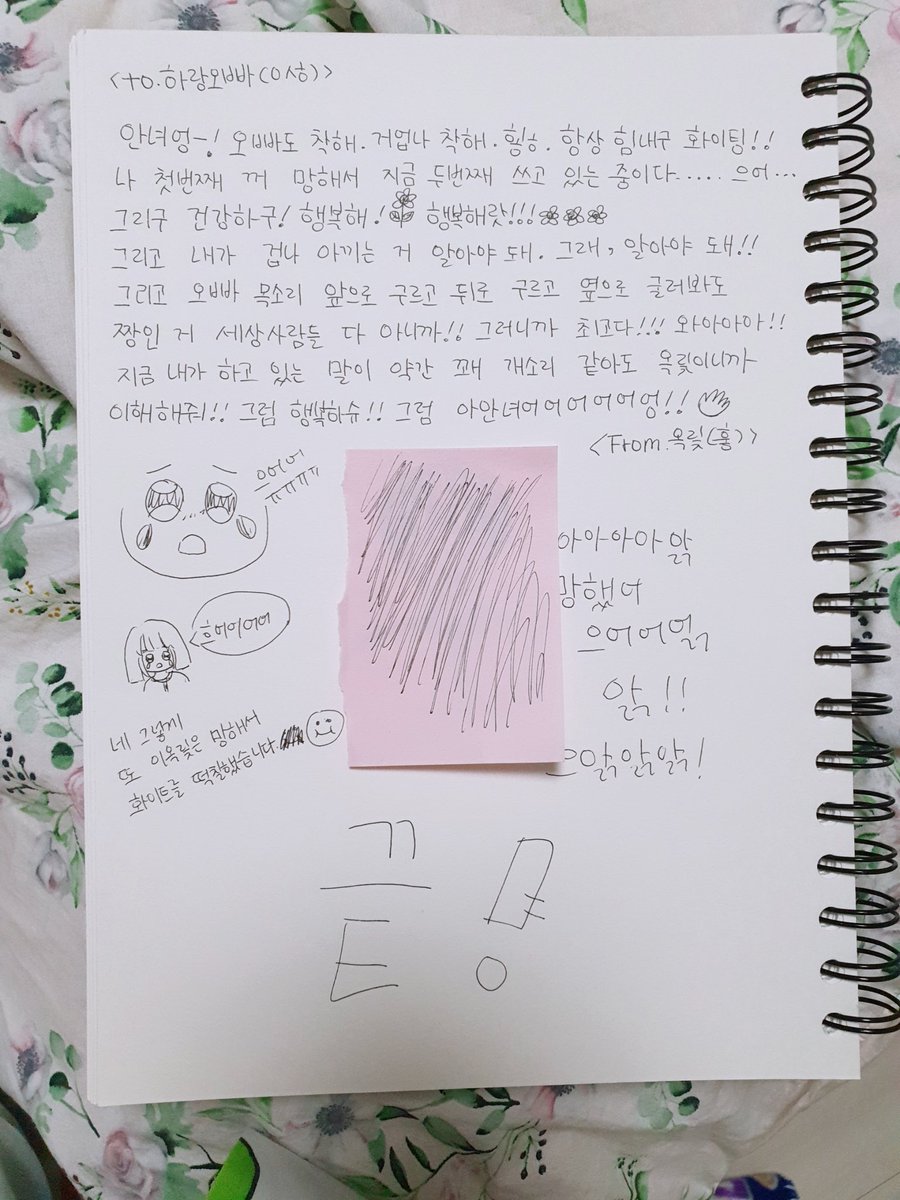 <to.하랑오빠(이성)>
안녀엉~! 오빠도 착해. 거업나 착해. 힝ㅎ. 항상 힘내구 화이팅!!
나 첫번째 꺼 망해서 지금 두번째 쓰고 있는 중이다..... 으어...
그리구 건강하구! 행복해! 행복해랏!!!
그리고 내가 겁나 아끼는 거 알아야 돼. 그래, 알아야 돼!!
그리고 오빠 목소리 앞으로 구르고 뒤로 구르고 옆으로 굴러봐도
짱인 거 세상사람들 다 아니까!! 그러니까 최고다!!! 와아아아!!
지금 내가 하고 있는 말이 약간 꽤 개소리 같아도 옥릿이니까
이해해줘!! 그럼 행복하슈!! 그럼 아안녀어어어어어엉!!
<From.옥릿(흠)>
으어어
ㅠㅠㅠㅠ
흐어이어어
네 그렇게
또 이옥릿은 망해서
화이트를 떡칠했습니다.
아아아아앍
망했어
으어어얽
앍!!
으앍앍앍!
끝!